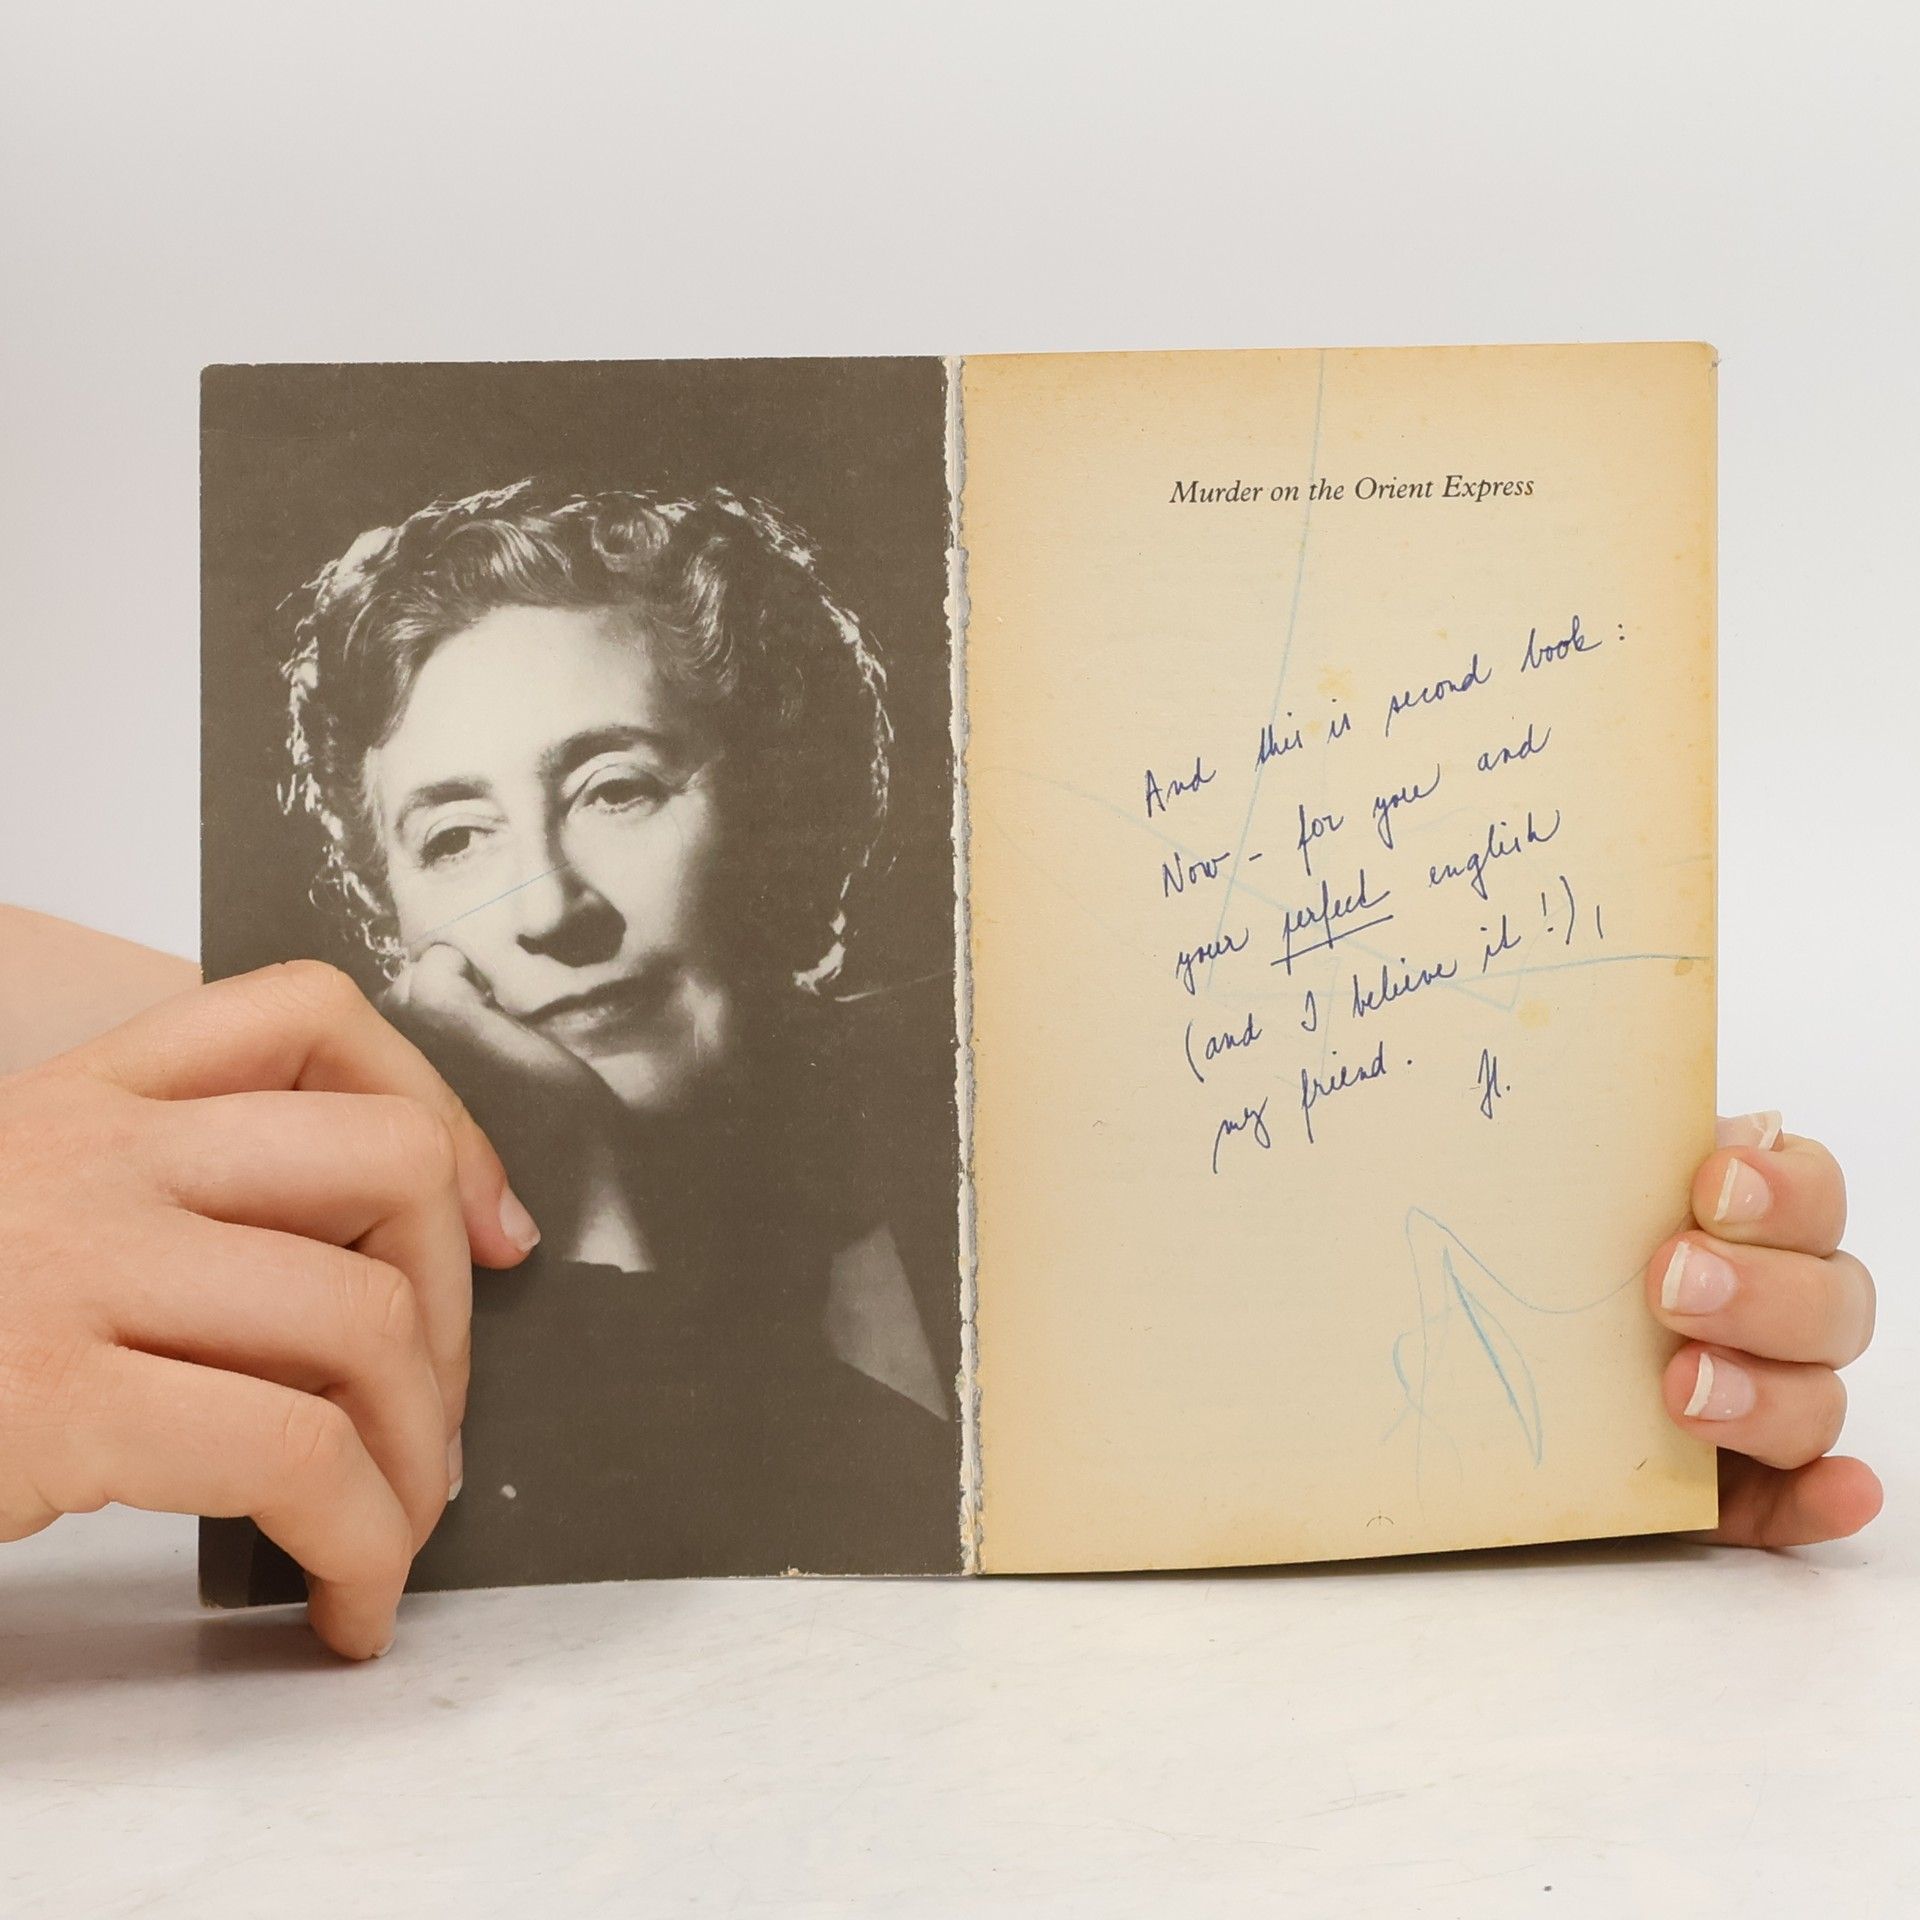 Murder on the Orient Express
And this is second book :
Now - for you and
your perfect english
(and I believe it !),
my friend. H.